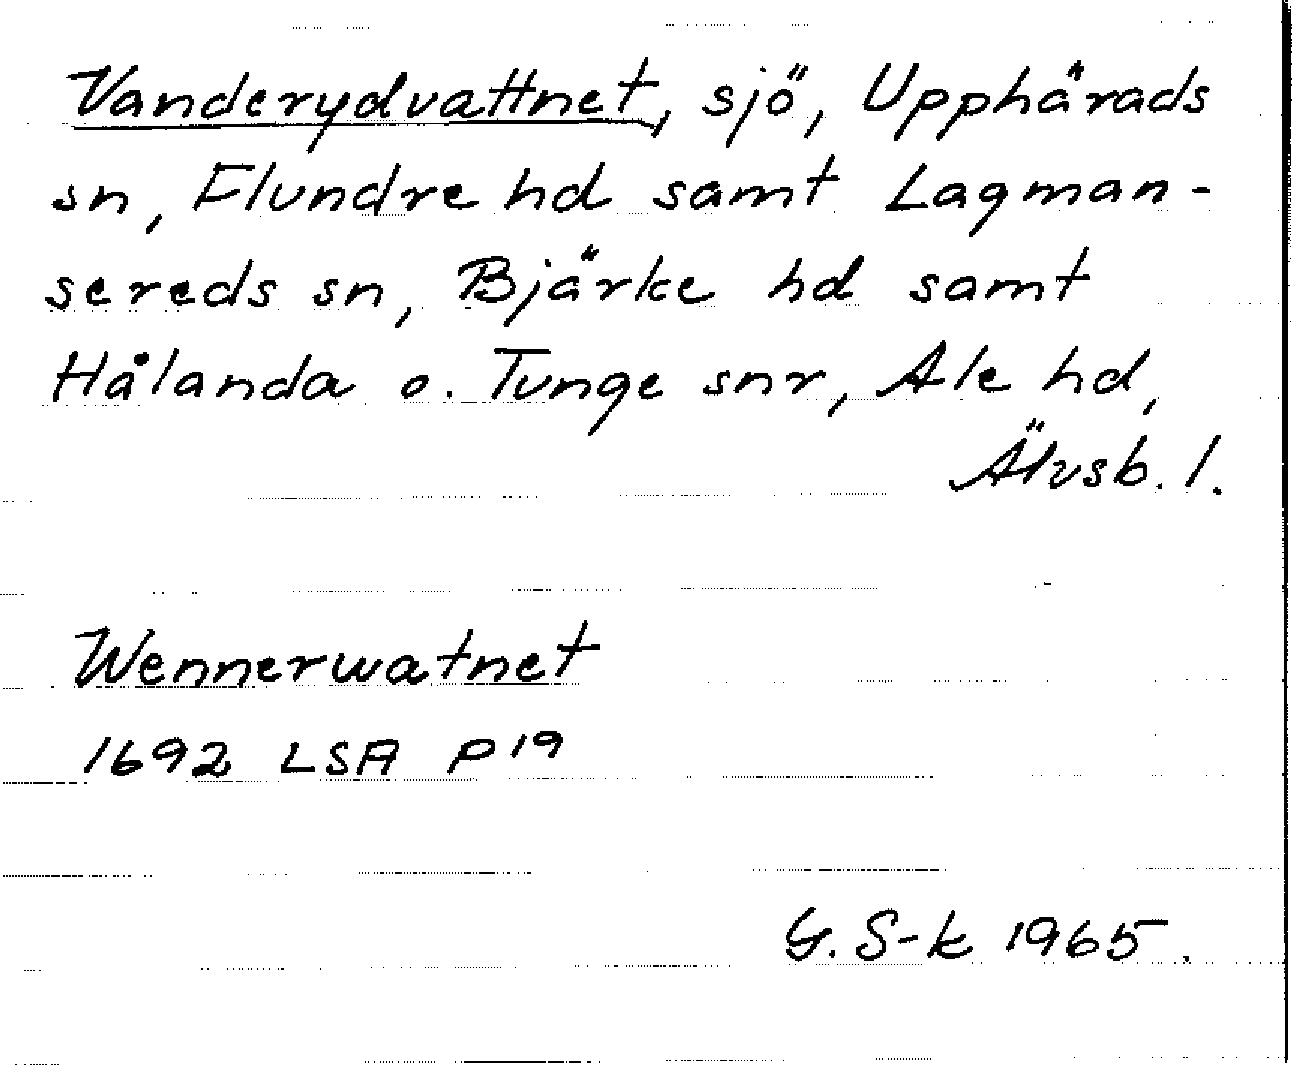 Vanderydvattnet, sjö, Upphärads
sn, Flundre hd samt Lagman-
sereds sn, Bjärke hd samt
Hålanda o. Tunge snr, Ale hd,
Älvsb. l.
Wennerwatnet
1692 LSA P19
G. S-k 1965.